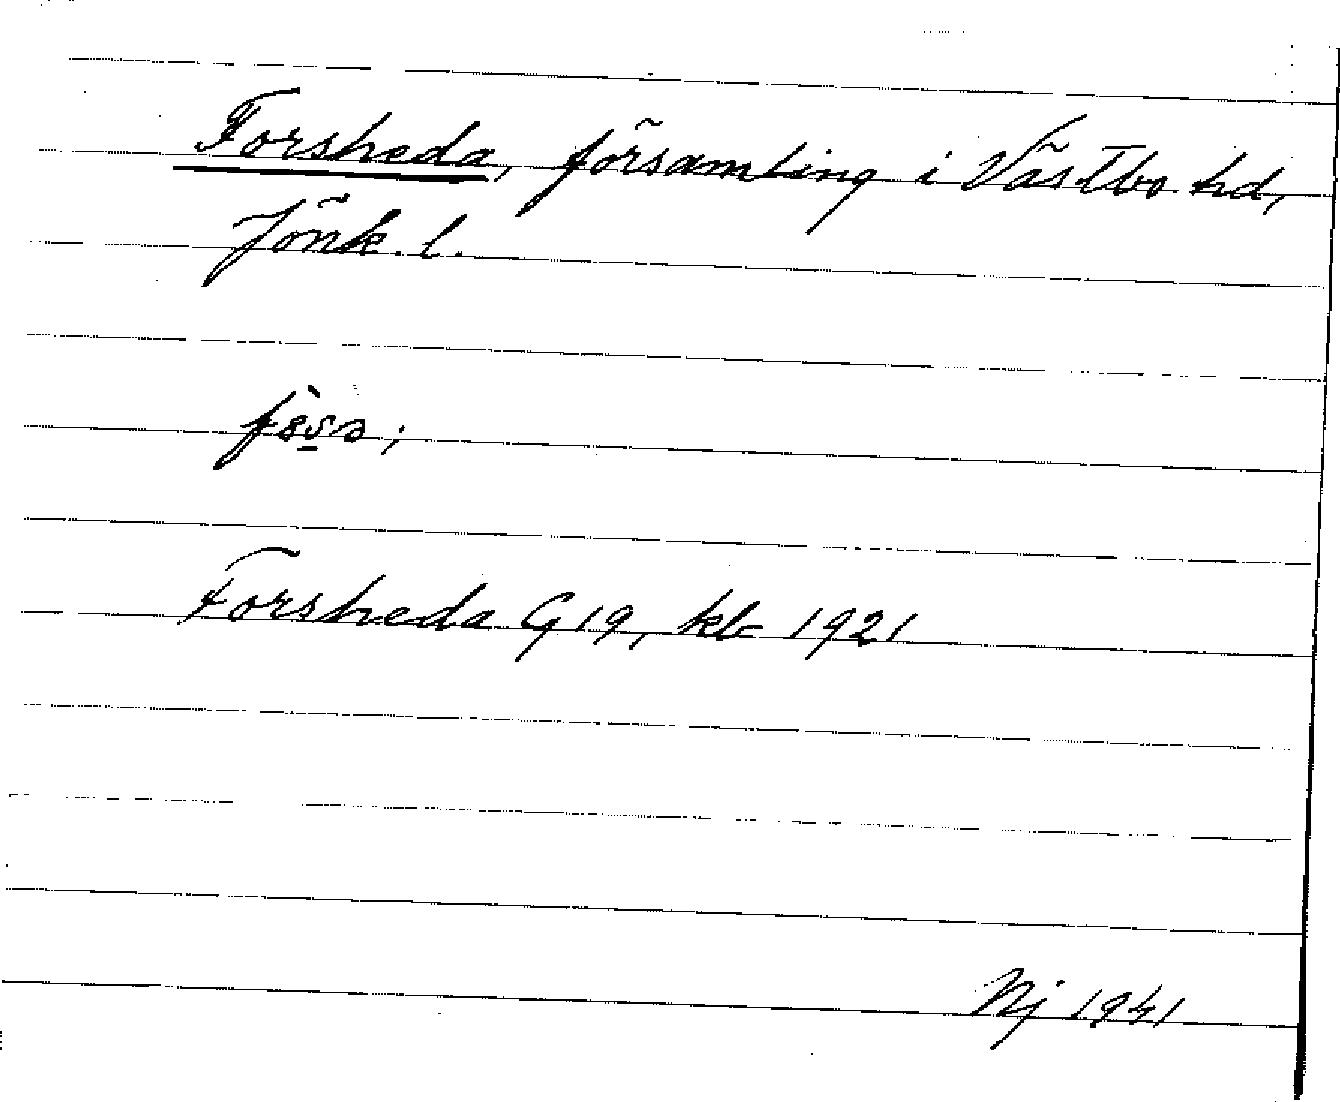 Forsheda, församling i Västbo hd,
Jönk. l.
Forsheda G 19, kb 1921
Nj 1941